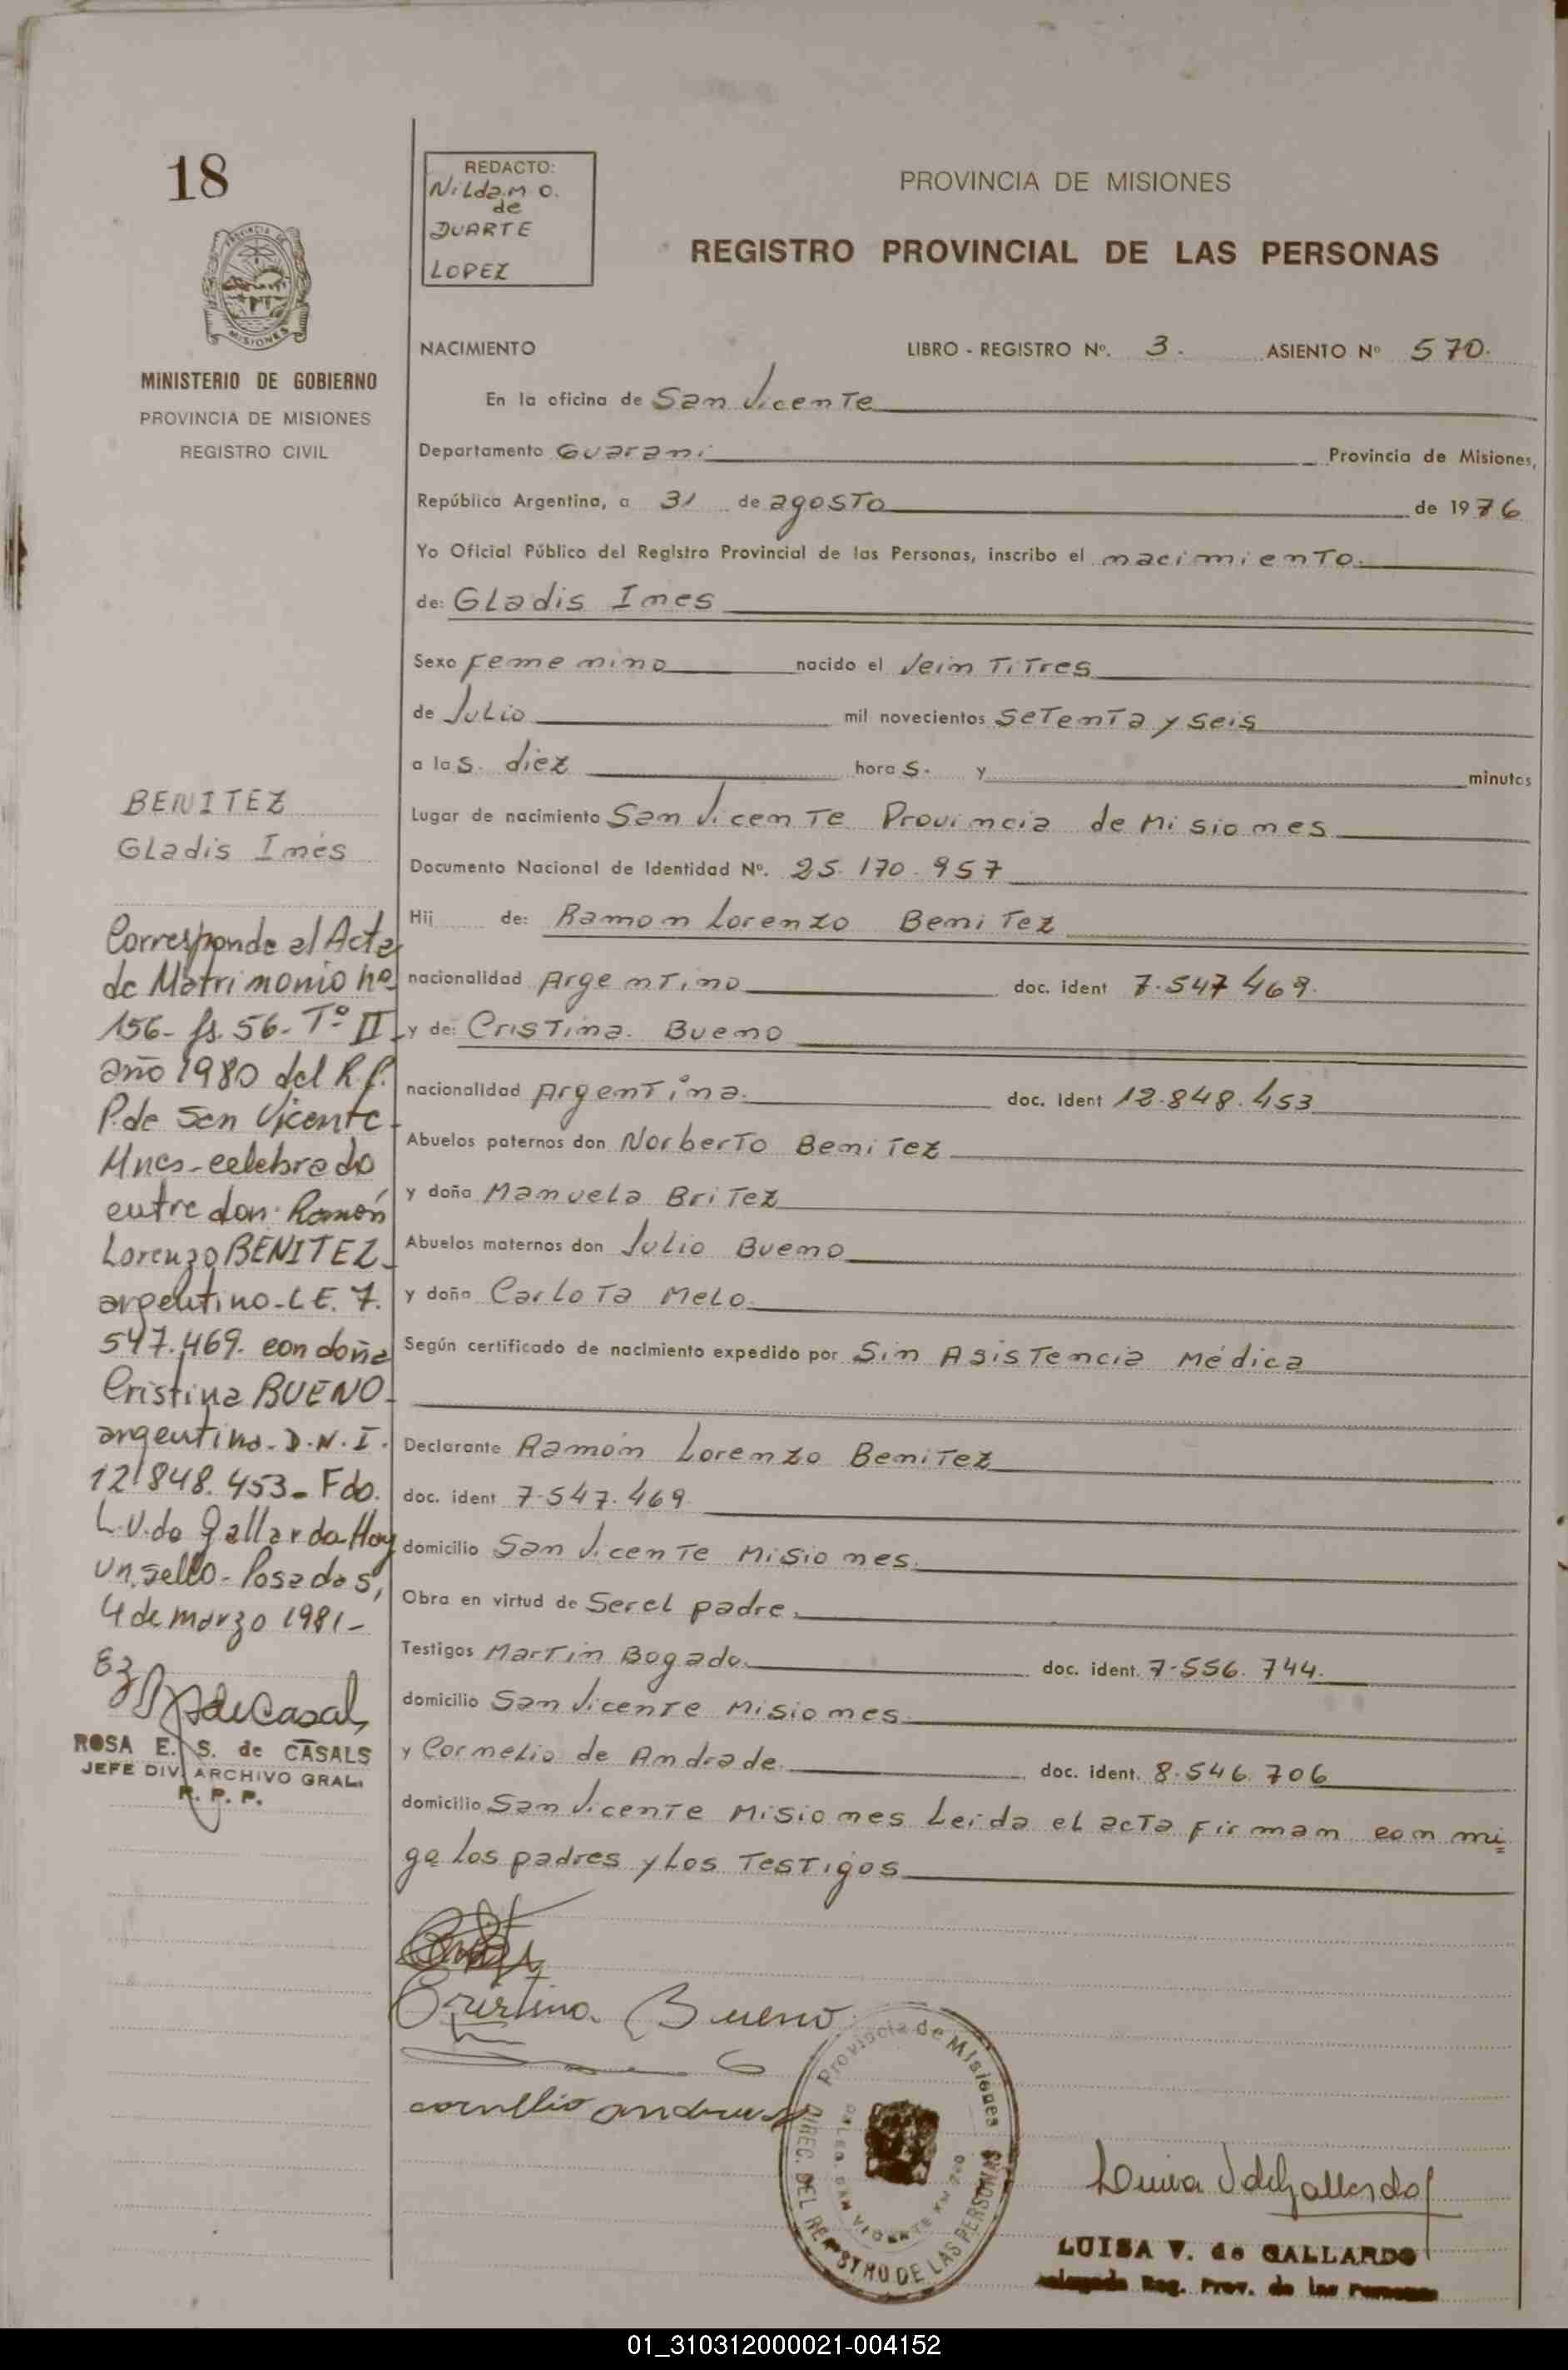 18
MINISTERIO DE GOBIERNO
PROVINCIA DE MISIONES
REGISTRO CIVIL
BENITEZ
Gladis Inés
Corresponde al Acta
de Matrimonio nº
156- fs. 56- Tº II
año 1980 del R.P.
P. de San Vicente
Mnes- celebrado
entre don: Ramón
Lorenzo BENITEZ-
argentino- L E. 7.
547.469. con doña
Cristina BUENO-
argentina- D.N.I.
12.848.453- Fdo.
L.V. de Gallardo-Hay
un sello- Posadas,
4 de marzo 1981-
ROSA E. S. de CASALS
JEFE DIV. ARCHIVO GRAL.
R. P. P.
REDACTO:
Nilda M O.
de
DUARTE
LOPEZ
PROVINCIA DE MISIONES
REGISTRO PROVINCIAL DE LAS PERSONAS
NACIMIENTO LIBRO - REGISTRO Nº. 3. ASIENTO Nº 570.
En la oficina de San Vicente
Departamento Guarani Provincia de Misiones,
República Argentina, a 31 de agosto de 1976
Yo Oficial Público del Registro Provincial de las Personas, inscribo el nacimiento.
de: Gladis Ines
Sexo Femenino nacido el Veintitres
de Julio mil novecientos setenta y seis
a las. diez horas. y minutos
Lugar de nacimiento San Vicente Provincia de Misiones
Documento Nacional de Identidad Nº. 25.170.957
Hij de: Ramon Lorenzo Benitez
nacionalidad Argentino doc. ident 7.547 469.
y de: Cristina. Bueno
nacionalidad Argentina. doc. ident 12.848.453
Abuelos paternos don Norberto Benitez
y doña Manuela Britez
Abuelos maternos don Julio Bueno
y doña Carlota Melo.
Según certificado de nacimiento expedido por Sin Asistencia Médica
Declarante Ramón Lorenzo Benitez
doc. ident 7.547.469.
domicilio San Vicente Misiones.
Obra en virtud de Ser el padre.
Testigos Martin Bogado. doc. ident. 7.556.744.
domicilio San Vicente Misiones.
y Cornelio de Andrade. doc. ident. 8.546.706
domicilio San Vicente Misiones Leida el acta firman con mi
go los padres y los testigos
Cristina Bueno
Provincia de Misiones
DIREC. DEL REGISTRO DE LAS PERSONAS
Luisa V de Gallardo
LUISA V. de GALLARDO
Reg. Prov. de las Personas
01_310312000021-004152